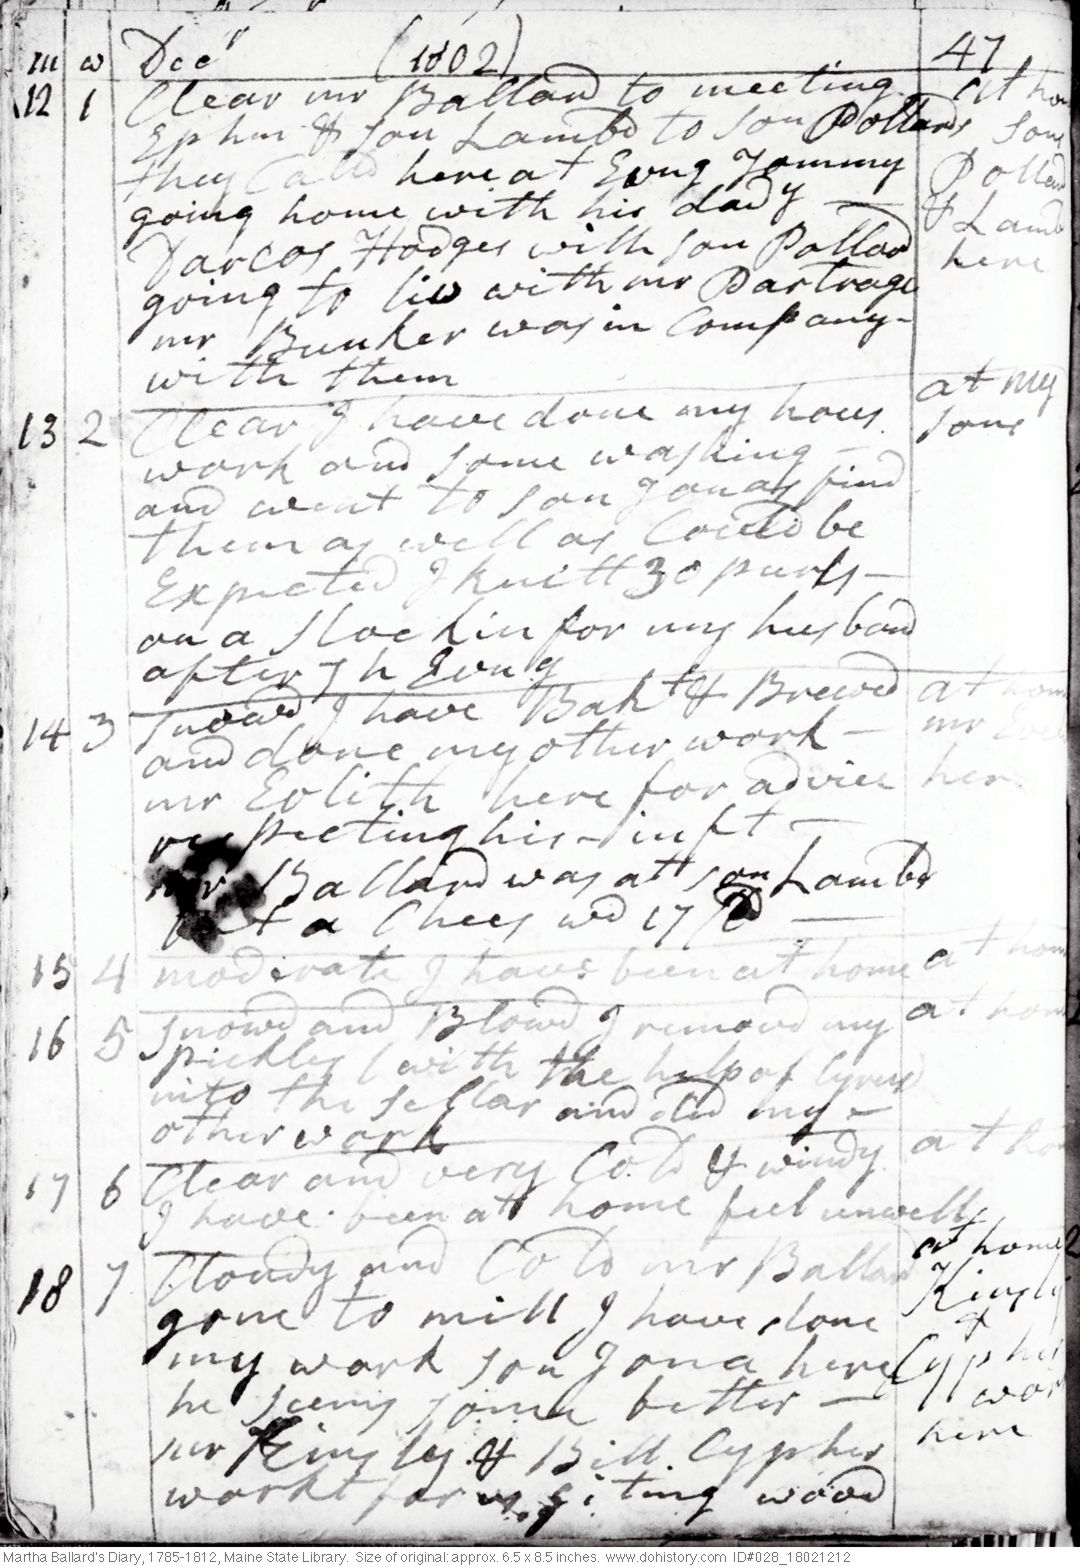 m w Decr (1802) 47
12 1 Clear mr Ballard to meeting at hom
Ephm & son Lambd to son Pollards sons
they Calld here at Evng Tommy Pollard
going home with his dady — & Lambd
Darcos Hodges with son Pollard here
going to liv with mr Partrage
mr Bunker was in Company
with them
13 2 Clear I have done my hous at my
work and some washing — sons
and went to son Jonas find
them as well as Could be
Expected I knitt 30 purls —
on a Stockin for my husband
after 7 h Evng
14 3 Snowd I have Bakt & Brewd at hom
and done my other work — mr
mr Eolith here for advice her
respecting his — inft —
mr Ballard was at son Lambd
a Chees wd 17
15 4 moderate I have been at home at hom
16 5 Snowd and Blowd I removd my at hom
pickles with the help of Cyrus
into the sellar and did my —
other work
17 6 Clear and very Cold & windy at hom
I have been at home feel unwell
18 7 Cloudy and Cold mr Ballard at home
gone to mill I have done Kingsly
my work son Jona here &
he seems some better — Cypher
mr Kingsly & Bill Cypher work
workt for us giting wood here
Martha Ballard's Diary, 1785-1812, Maine State Library. Size of original: approx. 6.5 x 8.5 inches. www.dohistory.com ID#028_18021212